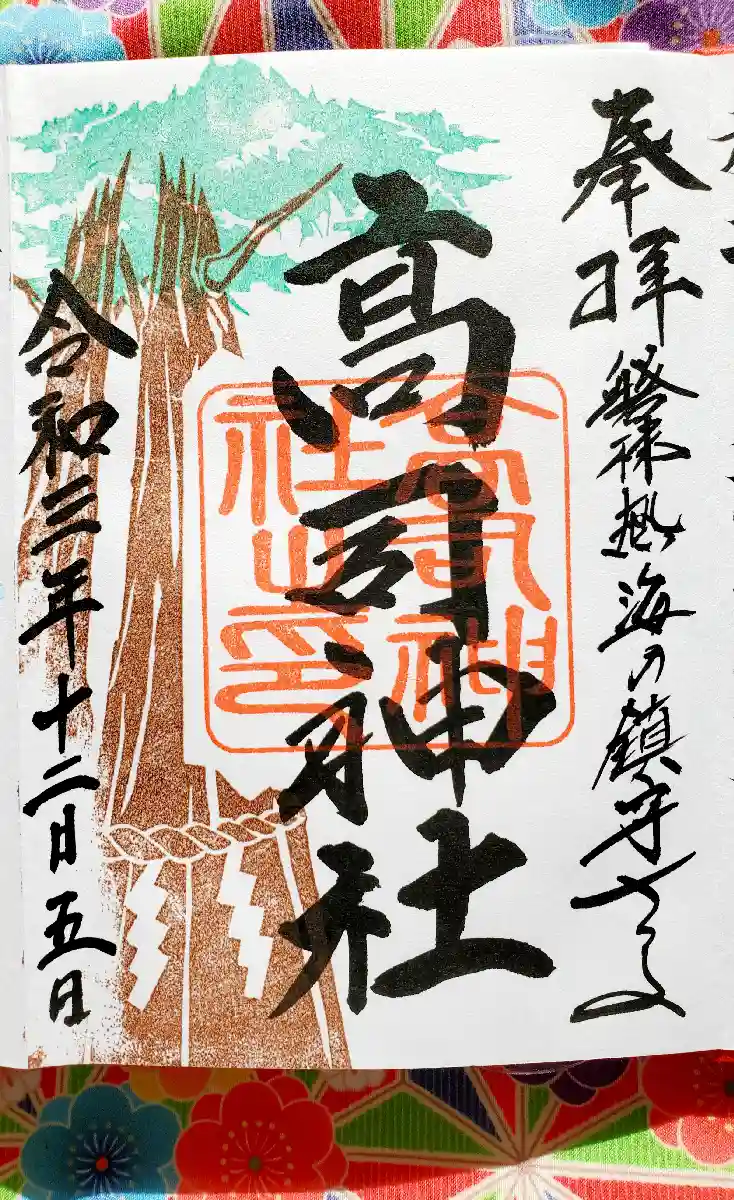 奉拝 磐梯熱海の鎮守
高司神社
高司神社之印
令和三年十二月五日